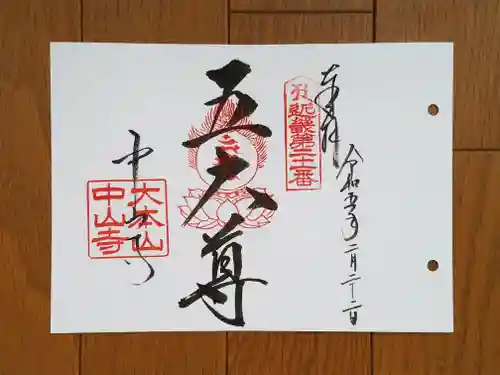 奉拝
令和五年二月二十二日
近畿第二十一番
五大尊
中山寺
大本山
中山寺